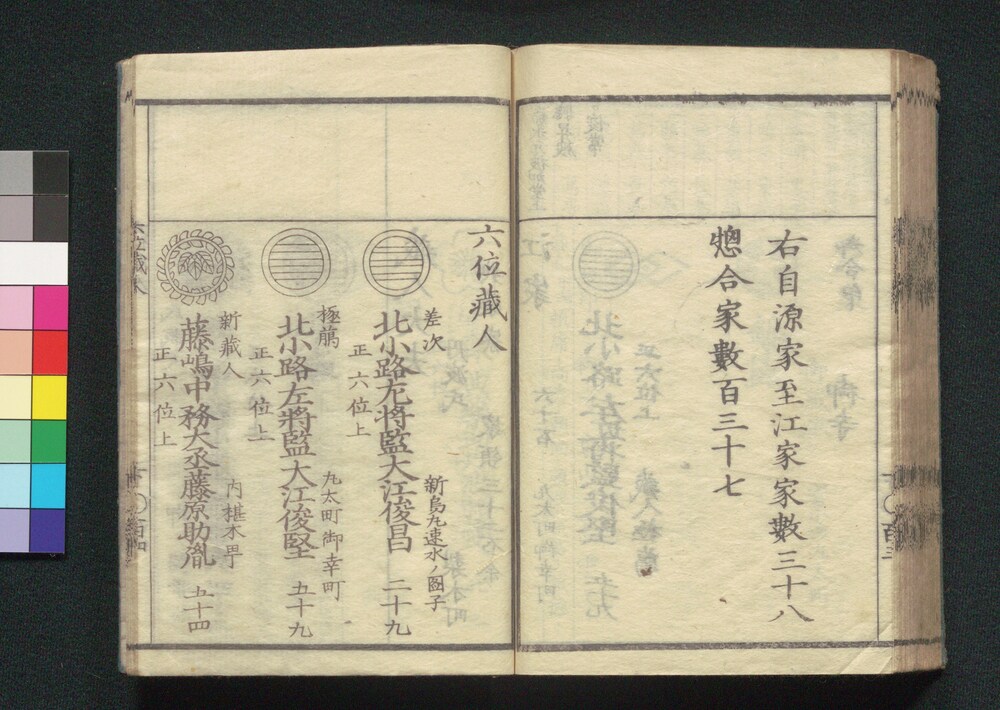 右自源家至江家家數三十八
惣合家數百三十七
六位藏人
差次
新烏丸速水ノ圖子
北小路左将監大江俊昌 二十九
正六位上
極﨟
丸太町御幸町
北小路左將監大江俊堅 五十九
正六位上
新藏人
内椹木町
藤嶋中務大丞藤原助胤 五十四
正六位上